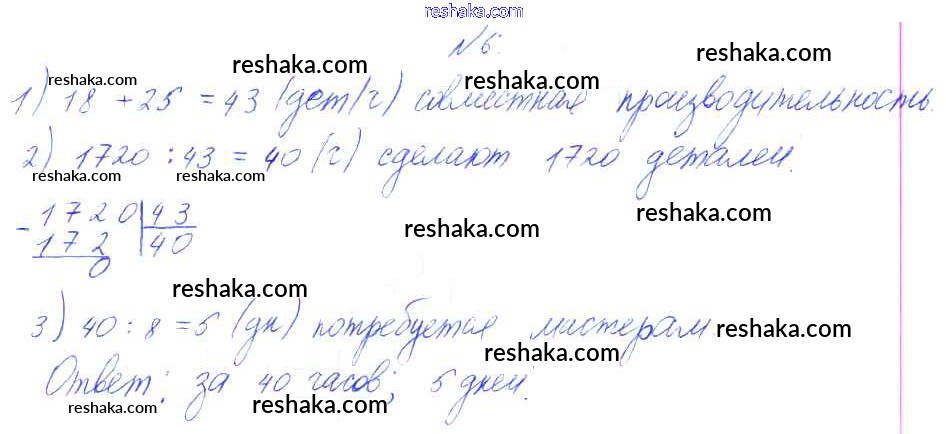 reshaka.com
№6.
reshaka.com reshaka.com reshaka.com
1) 18 + 25 = 43 (дет/ч) совместная производительность.
2) 1720 : 43 = 40 (ч) сделают 1720 деталей.
reshaka.com reshaka.com reshaka.com
- 1720 | 43
172 | 40
0
reshaka.com reshaka.com
reshaka.com
3) 40 : 8 = 5 (дн) потребуется мастерам reshaka.com
reshaka.com
Ответ: за 40 часов; 5 дней.
reshaka.com reshaka.com